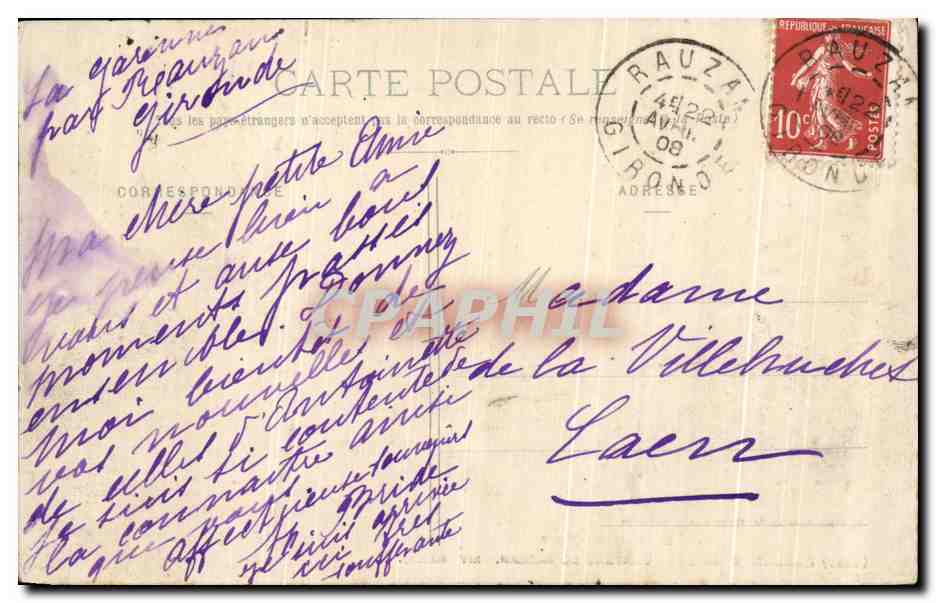 La Garenne
par Rauzan
Gironde
CARTE POSTALE
Tous les pays étrangers n'acceptent pas la correspondance au recto (Se renseigner à la Poste)
CORRESPONDANCE
ADRESSE
Ma chère petite Amie
je pense bien à
vous et aux bons
moments passés
ensembles. Donnez
moi bientôt de
vos nouvelles et
de celles d'Antoinette
Je suis si contente de
la connaître ainsi
que vous
affectueux souvenirs
Bride
je suis arrivée
ici très
souffrante
Madame
de la Villebruches
Caen
RAUZAN
4E 22
AVRIL
08
GIRONDE
REPUBLIQUE FRANÇAISE
10c
POSTES
RAUZAN
GIRONDE
CPAPHIL